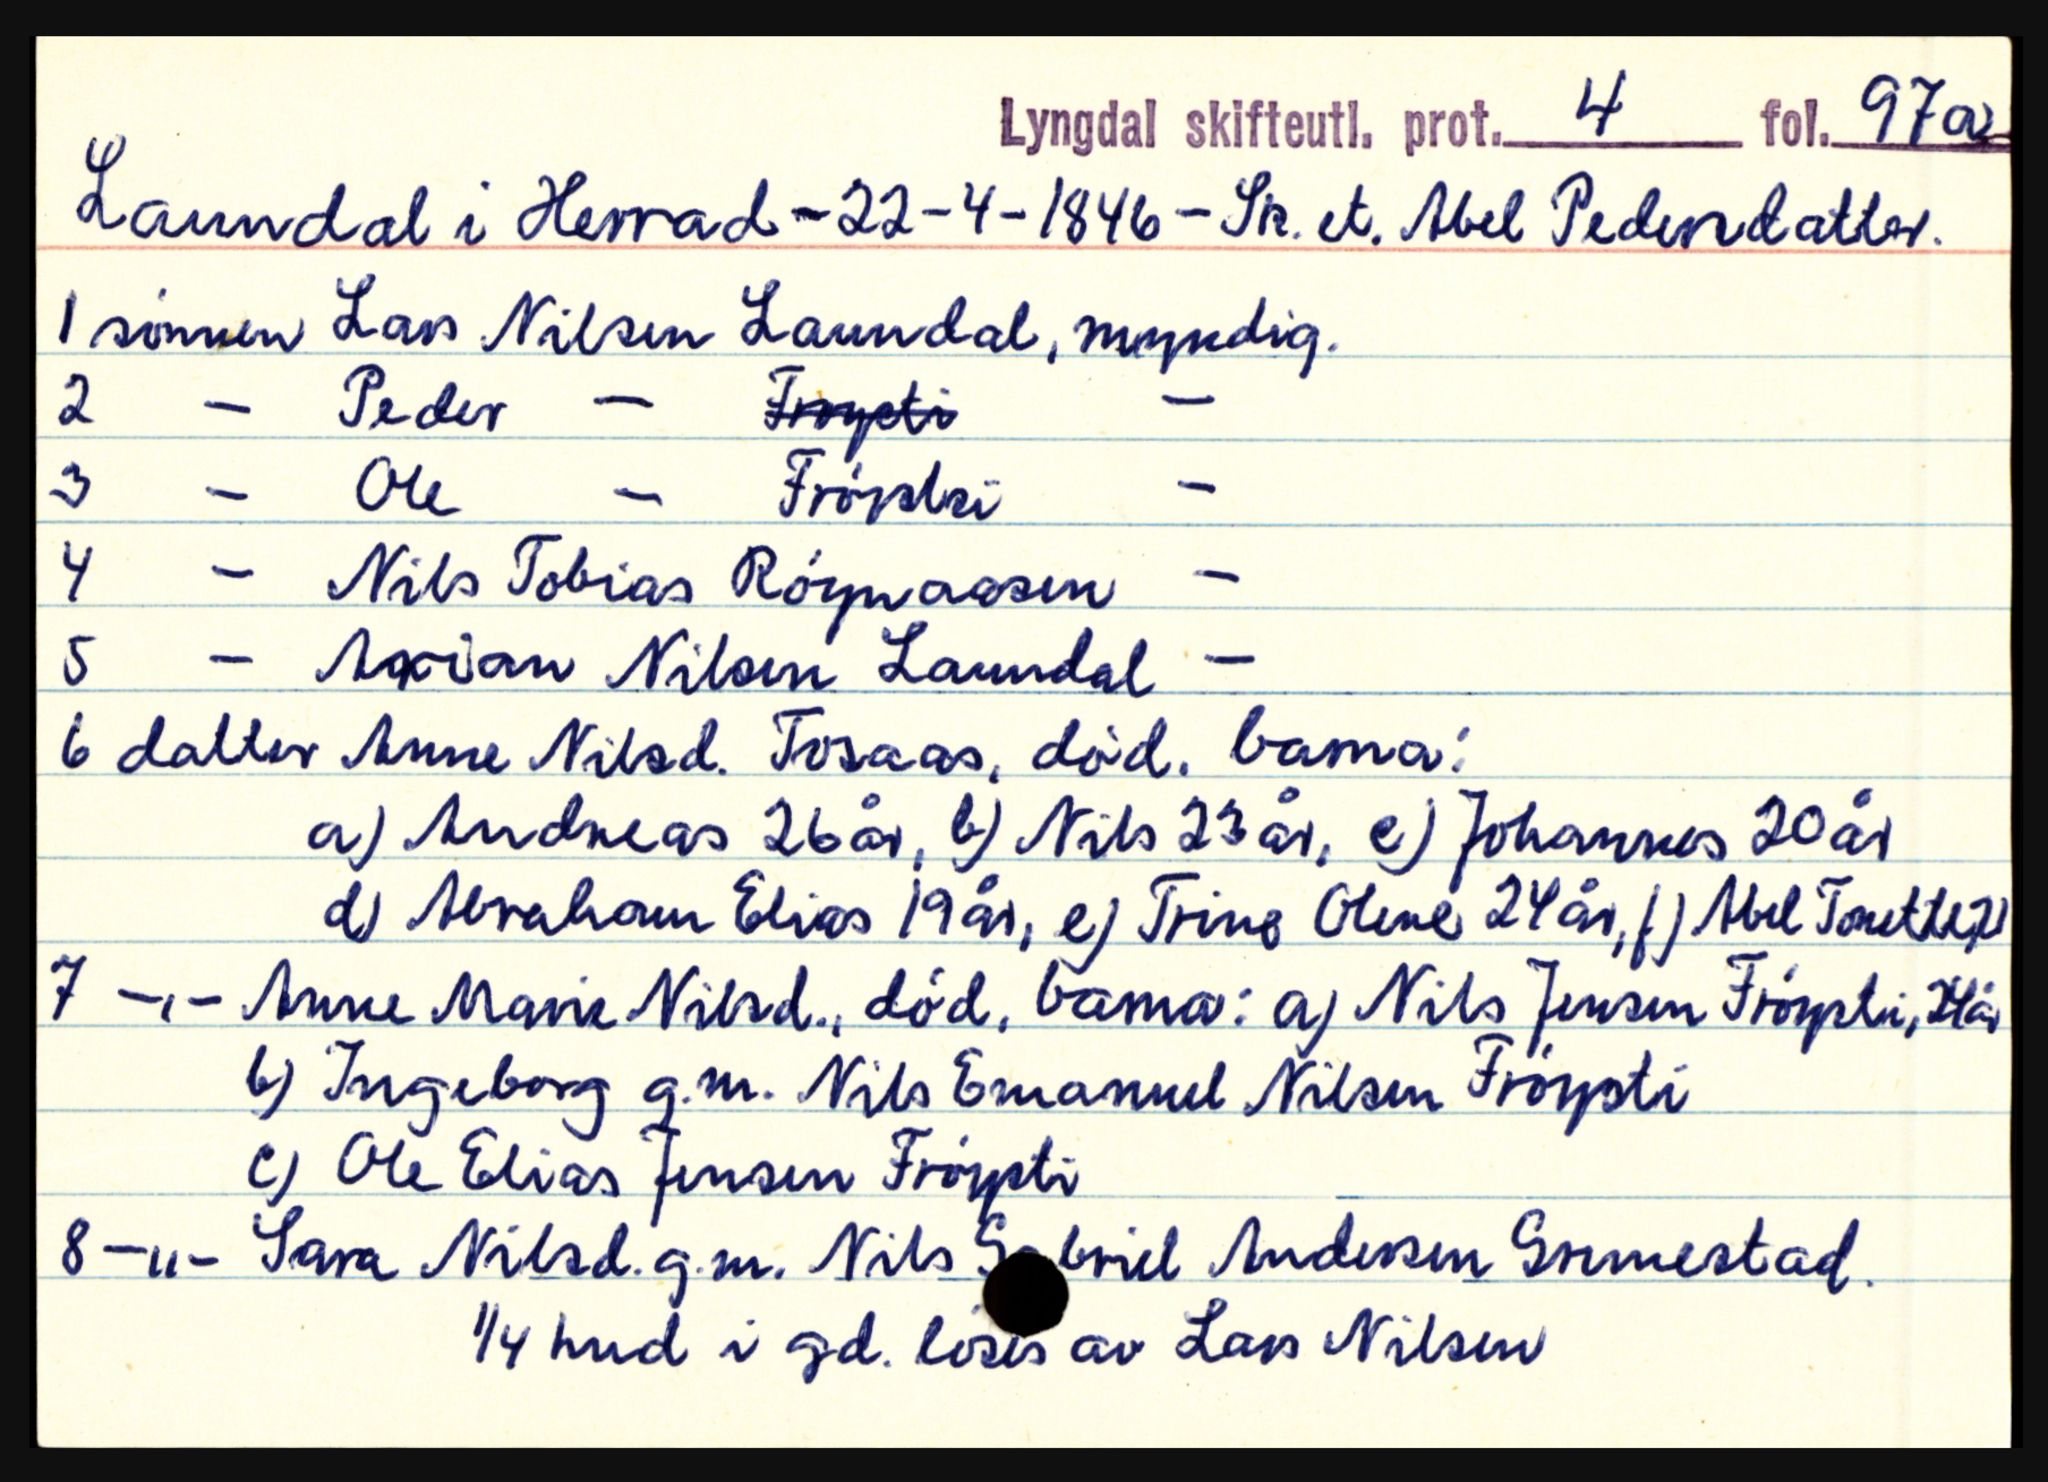 Lyngdal skifteutl. prot. 4 fol. 97a
Laundal i Herrad - 22-4-1846 - Sk. et. Abel Pedersdatter.
1 sönnen Lars Nilsen Laundal, myndig.
2 - Peder - Fröysti -
3 - Ole - Fröysti -
4 - Nils Tobias Röynaasen -
5 - Axian Nilsen Laundal -
6 datter Anne Nilsd. Tosaas, död. barna:
a) Andreas 26 år, b) Nils 23 år, c) Johannes 20 år
d) Abraham Elias 19 år, e) Trine Olene 24 år, f) Abel Tonette
7 -"- Anne Marie Nilsd., död, barna: a) Nils Jensen Fröysti, 24 år
b) Ingeborg g.m. Nils Emanuel Nilsen Fröysti
c) Ole Elias Jensen Fröysti
8 -"- Sara Nilsd. g.m. Nils Gabriel Andersen Grimestad.
1/4 hud i gd. löses av Lars Nilsen